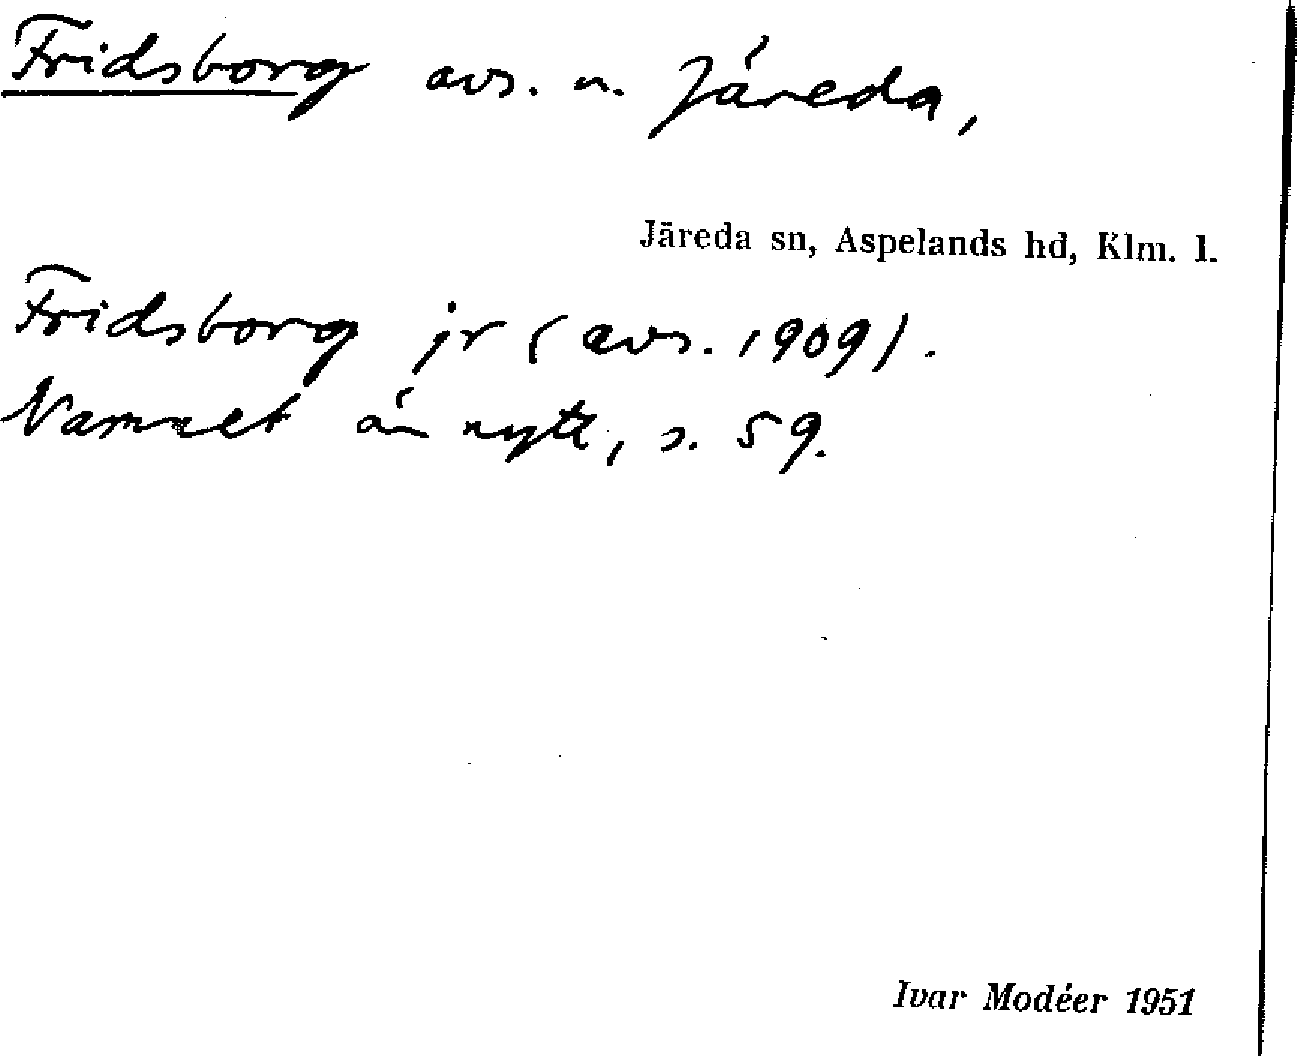 Fridsborg avs. u. Järeda,
Järeda sn, Aspelands hd, Klm. l.
Fridsborg jr (avs. 1909).
Namnet är nytt, s. 59.
Ivar Modéer 1951